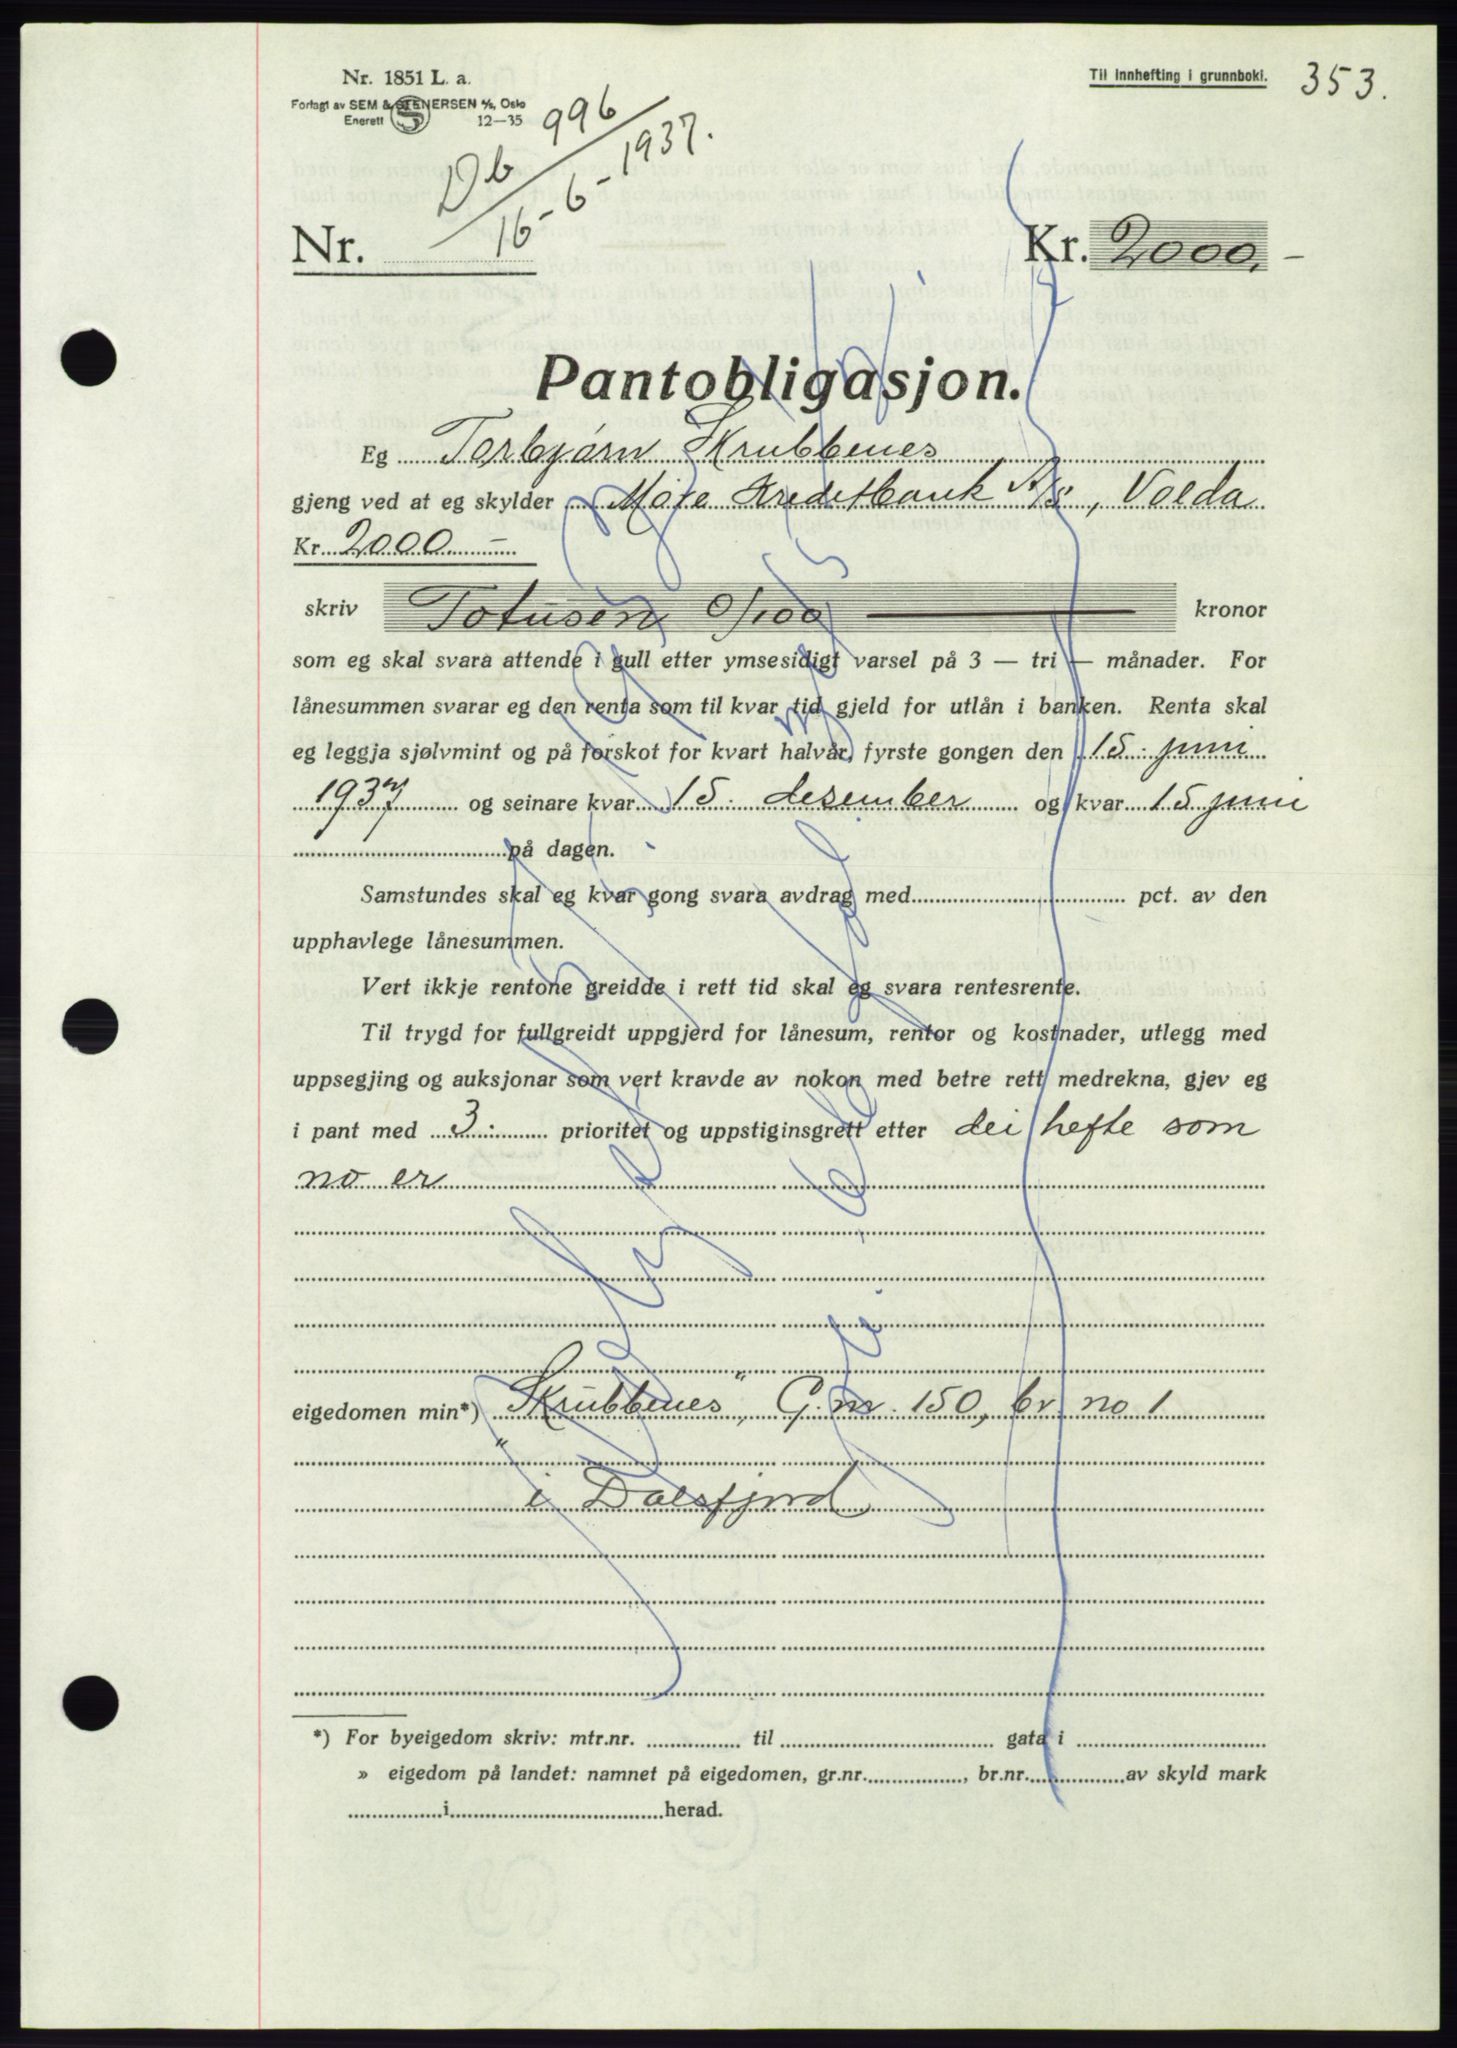 Nr. 1851 L. a.
Forlagt av SEM & STENERSEN A/S, Oslo
Enerett 12—35
Til innhefting i grunnboki.
353.
Db 996
16-6-1937.
Nr.
Kr. 2000.—
Pantobligasjon.
Eg Torbjørn Skrubbenes
gjeng ved at eg skylder Møre Kreditbank A/S, Volda
Kr. 2000 —
skriv Totusen 0/100 kronor
som eg skal svara attende i gull etter ymsesidigt varsel på 3 — tri — månader. For
lånesummen svarar eg den renta som til kvar tid gjeld for utlån i banken. Renta skal
eg leggja sjølvmint og på forskot for kvart halvår, fyrste gongen den 15. juni
1937 og seinare kvar 15. desember og kvar 15 juni
på dagen.
Samstundes skal eg kvar gong svara avdrag med pct. av den
upphavlege lånesummen.
Vert ikkje rentone greidde i rett tid skal eg svara rentesrente.
Til trygd for fullgreidt uppgjerd for lånesum, rentor og kostnader, utlegg med
uppsegjing og auksjonar som vert kravde av nokon med betre rett medrekna, gjev eg
i pant med 3. prioritet og uppstiginsgrett etter dei hefte som
no er
eigedomen min*) "Skrubbenes", G.nr. 150, br. no 1
i Dalsfjord
*) For byeigedom skriv: mtr.nr. til gata i
» eigedom på landet: namnet på eigedomen, gr.nr. , br.nr. av skyld mark
i herad.